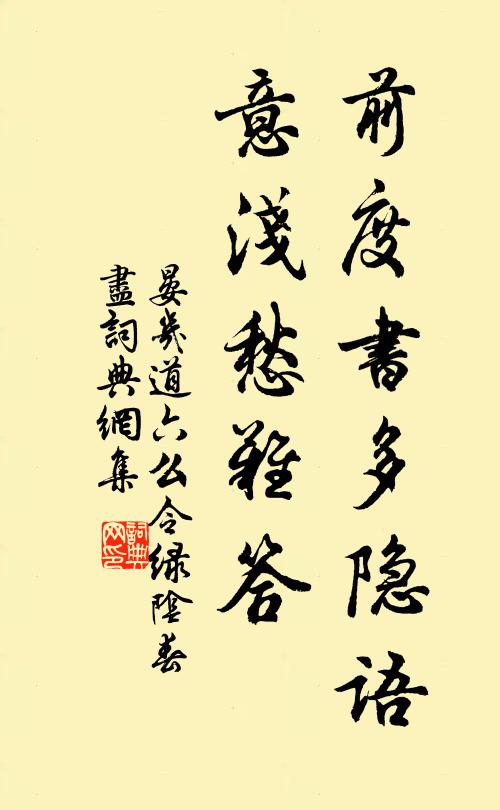 前度書多隐語
意淺愁難答
晏幾道六么令绿陰春
盡詞典網集
詞典网印